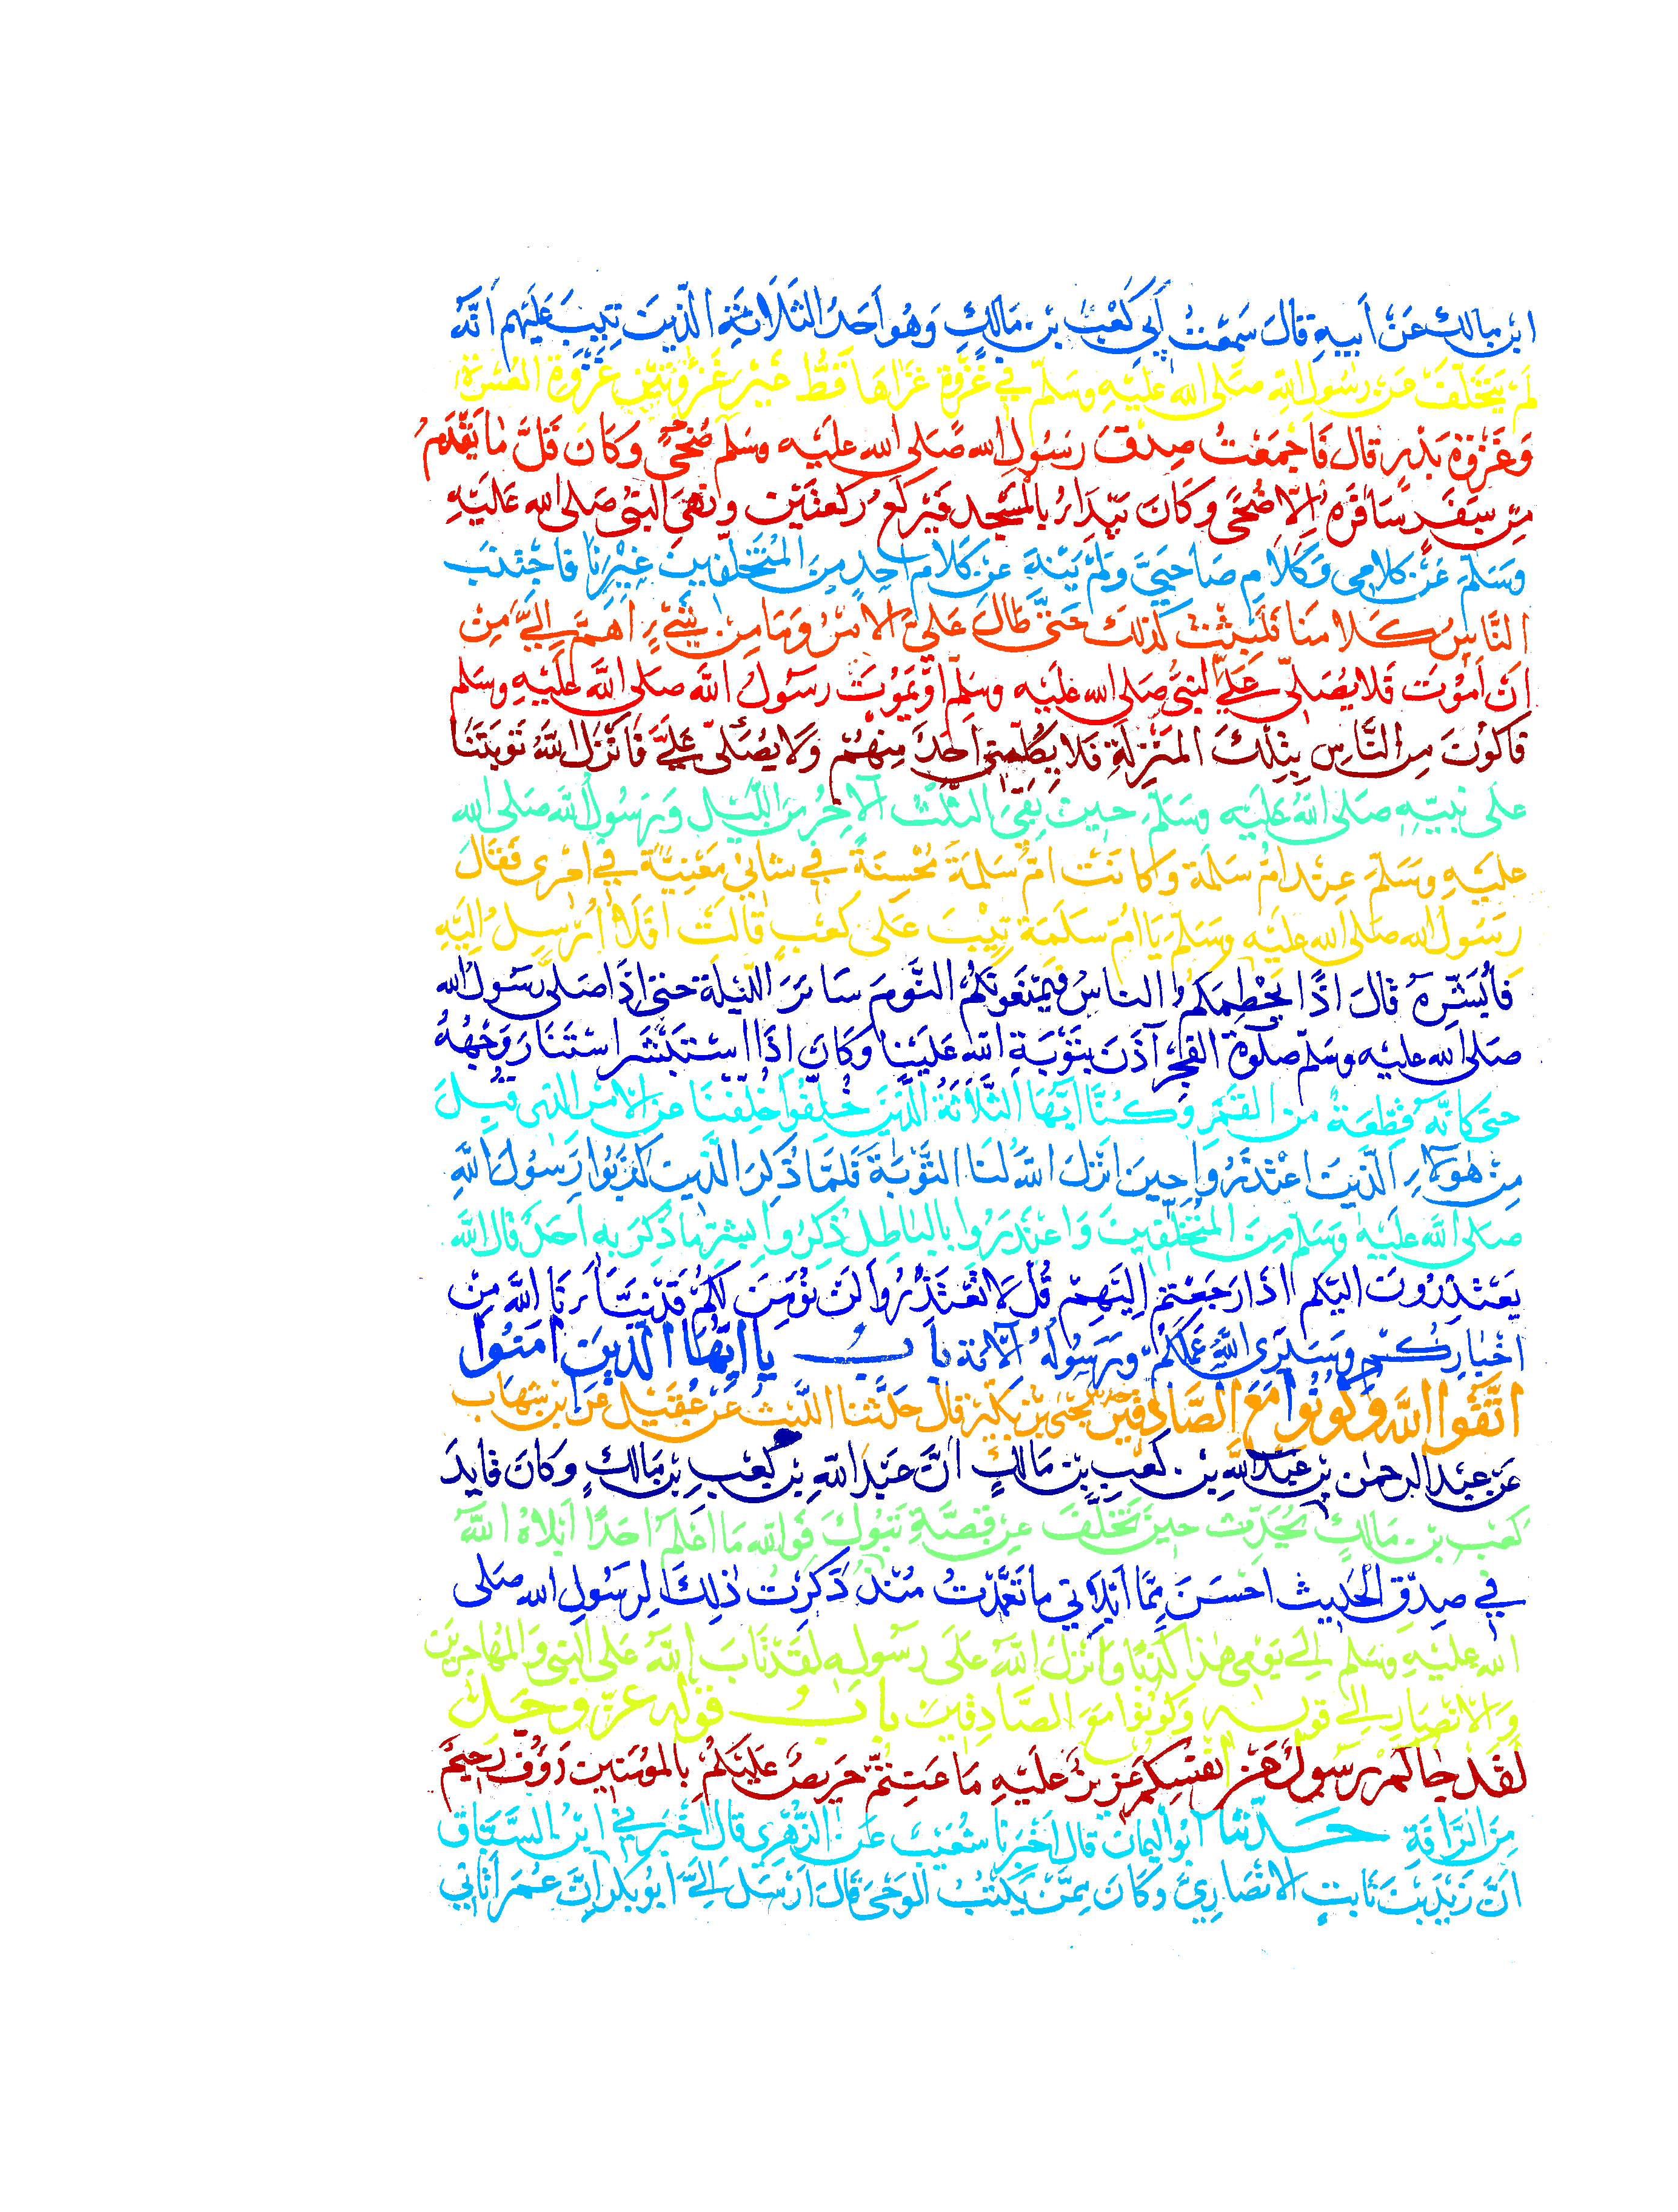 ابن مالك عَنْ اَبيهِ قالَ سَمِعْتُ اَبِى كَعْبَ بن مَالكٍ وَهُو اَحَدُ الثَلَاثَةِ الَّذينَ تِيبَ عَلَيْهم اَنَّهُ
لَمْ يَتَخَلَّفْ عَنْ رسُول الله صَلى الله عَلَيْهِ وسَلّم فِي غَزْوَةٍ غَزَاهَا قَطُّ غَيْرَ غَزْوَتَيْنِ غَزْوَةِ العُسْرَةِ
وَغَزْوَةِ بَدْرٍ قال فَاَجْمَعْتُ صِدقَ رسُول الله صَلى الله عليْه وسَلم ضُحًى وَكَانَ قَلَّ مَا يَقْدَمُ
مِن سَفَرٍ سَافَرَهُ اِلّا ضُحًى وَكَانَ يَبْدَاُ بالمَسْجِد فَيَرْكَعُ رَكعتَيْن وَنَهَى النبىُّ صَلى الله عَليْهِ
وَسَلمَ عَنْ كلامِى وَكَلامِ صَاحبَيَّ وَلَمْ يَنْهَ عَنْ كَلامِ اَحِدٍ مِنَ المُتَخلّفِينَ غَيْرِنَا فَاجْتَنَبَ
النَّاسُ كَلامَنَا فَلَبِثْتُ كَذلِكَ حَتّى طَالَ عَليَّ الامْرُ وَمَا مِنْ شَيْءٍ اَهَمَّ اِلَيَّ مِنْ
اَنْ اَمُوْتَ فَلا يُصَلِّى عَلَيَّ النبىُّ صَلى الله عَليْه وسَلم اَوْ يَمُوْتَ رسُولُ الله صَلى الله عَلَيْهِ وسَلم
فَاكُوْنَ مِن النَّاسِ بِتِلْكَ المَنْزِلَةِ فَلا يُكَلّمُنِى اَحَدٌ مِنْهُمْ وَلا يُصَلّى عَلَيَّ فَاَنْزَلَ اللهُ تَوْبَتَنَا
عَلى نَبيّهِ صَلى اللهُ عَليه وسَلمَ حِينَ بَقِىَ الثُلُثُ الآخِرُ مِنَ اللّيْلِ وَرَسُولُ الله صَلى الله
عليَهِ وَسَلمَ عِنْدَ امِّ سَلمَةَ وَكانَتْ امُّ سَلمَةَ مُحْسِنَةً فِي شَاني مَعْنِيَّةً فِي اَمْرى فَقَالَ
رَسُولُ الله صَلى الله عليْه وسَلمَ يَا امَّ سَلَمَةَ تِيْبَ عَلى كعْبٍ قَالَتْ اَفَلَا اُرْسِلُ اِلَيْهِ
فَاُبَشّرَهُ قَالَ اذًا يَحْطِمَكُمُ الناسُ فَيَمْنَعُونَكُمُ النَّومَ سَائرَ اللّيْلَةِ حَتى اِذَا صَلى رسُول الله
صَلى الله عليْه وسَلم صَلوةَ الفَجْرِ آذَنَ بِتَوْبَةِ الله عَلَيْنَا وَكَانَ اِذَا اسْتَبْشَر اسْتَنَارَ وَجْهُهُ
حَتى كَانّهُ قِطْعَةٌ مِن القَمَرِ وَكُنَّا اَيُّهَا الثَّلَاثَةُ الَّذِينَ خُلِّفُوا خُلِّفْنَا عن الامْر الذى قُبِلَ
مِنْ هَؤلاءِ الَّذِينَ اعْتَذَرُوا حِينَ اَنْزَلَ اللهُ لنَا التَّوْبَةَ فَلمَّا ذُكِرَ الَّذِينَ كَذَبُوا رَسُولَ اللهِ
صَلى الله عَليْهِ وَسَلّم مِنَ المُتَخَلّفِينَ وَاعْتَذَرُوا بالبَاطِل ذُكِرُوا بِشَرِّ مَا ذُكِرَ بِه اَحَدٌ قَال الله
يَعْتَذِرُونَ اليْكم اِذَا رَجَعْتمْ اِلَيْهِمْ قُلْ لَا تَعْتَذِرُوا لَنْ نُؤمِنَ لَكُمْ قَدْ نَبَّاَنَا اللهُ مِنْ
اَخْبَارِكُمْ وَسَيَرَى اللهُ عَمَلَكُمْ وَرَسُولُهُ الآيَة بَابُ يَا اَيُّهَا الَّذِينَ آمَنُوا
اتَّقُوا اللهَ وَكُونُوا مَعَ الصَّادِقِينَ يحيَى بن بُكَيْرٍ قال حَدَّثَنَا اللَّيْثُ عَنْ عُقَيْلٍ عَن ابْنِ شِهَابٍ
عَنْ عبْد الرحمٰن بْن عَبْد اللهِ بن كَعْبِ بْنِ مَالكٍ اَنَّ عَبْدَ اللهِ بن كَعْبِ بْنِ مَالكٍ وَكَانَ قَايدَ
كَعْب بن مَالكٍ يُحَدّث حِينَ تَخَلَّفَ عن قصَّةِ تَبُوكَ فَوَالله مَا اعْلَمُ اَحَدًا اَبْلاهُ اللهُ
فِي صِدْقِ الْحَدِيث اَحْسَنَ مِمَّا اَبْلاَنِي مَا تَعَمَّدْتُ مُنْذُ ذَكَرْتُ ذَلِكَ لِرَسُولِ الله صَلى
الله عليْهِ وَسَلم اِلَى يَوْمِى هٰذَا كَذِبًا وَاَنْزَلَ اللهُ عَلَى رَسُولِهِ لَقَدْ تَابَ اللهُ عَلى النبِى وَالمُهَاجِرِينَ
وَالانْصَارِ اِلَى قولِه وَكُونُوا مَعَ الصَّادِقِينَ بَابُ قَوْلِهِ عَزَّ وجَلَّ
لَقَد جَاكُمْ رَسُولٌ مِّنْ اَنفُسِكُمْ عَزِيزٌ عَلَيْهِ مَا عَنِتُّمْ حَرِيصٌ عَلَيْكُمْ بِالمُؤمِنِين رَؤُفٌ رَحِيمٌ
مِنَ الرَّافَةِ حَدَّثَنَا ابُو اليمَان قال اَخْبَرنَا شُعَيْبٌ عَن الزّهْرى قال اَخْبَرَنِي ابْنُ السَّبَّاق
اَنَّ زَيْدَ بْنَ ثَابتٍ الانْصَارِيَّ وَكَانَ مِمَّنْ يَكْتُبُ الوَحْىَ قَالَ اَرْسَلَ اِلَيَّ ابُو بَكْرٍ اِنَّ عُمَرَ اَتَانِي